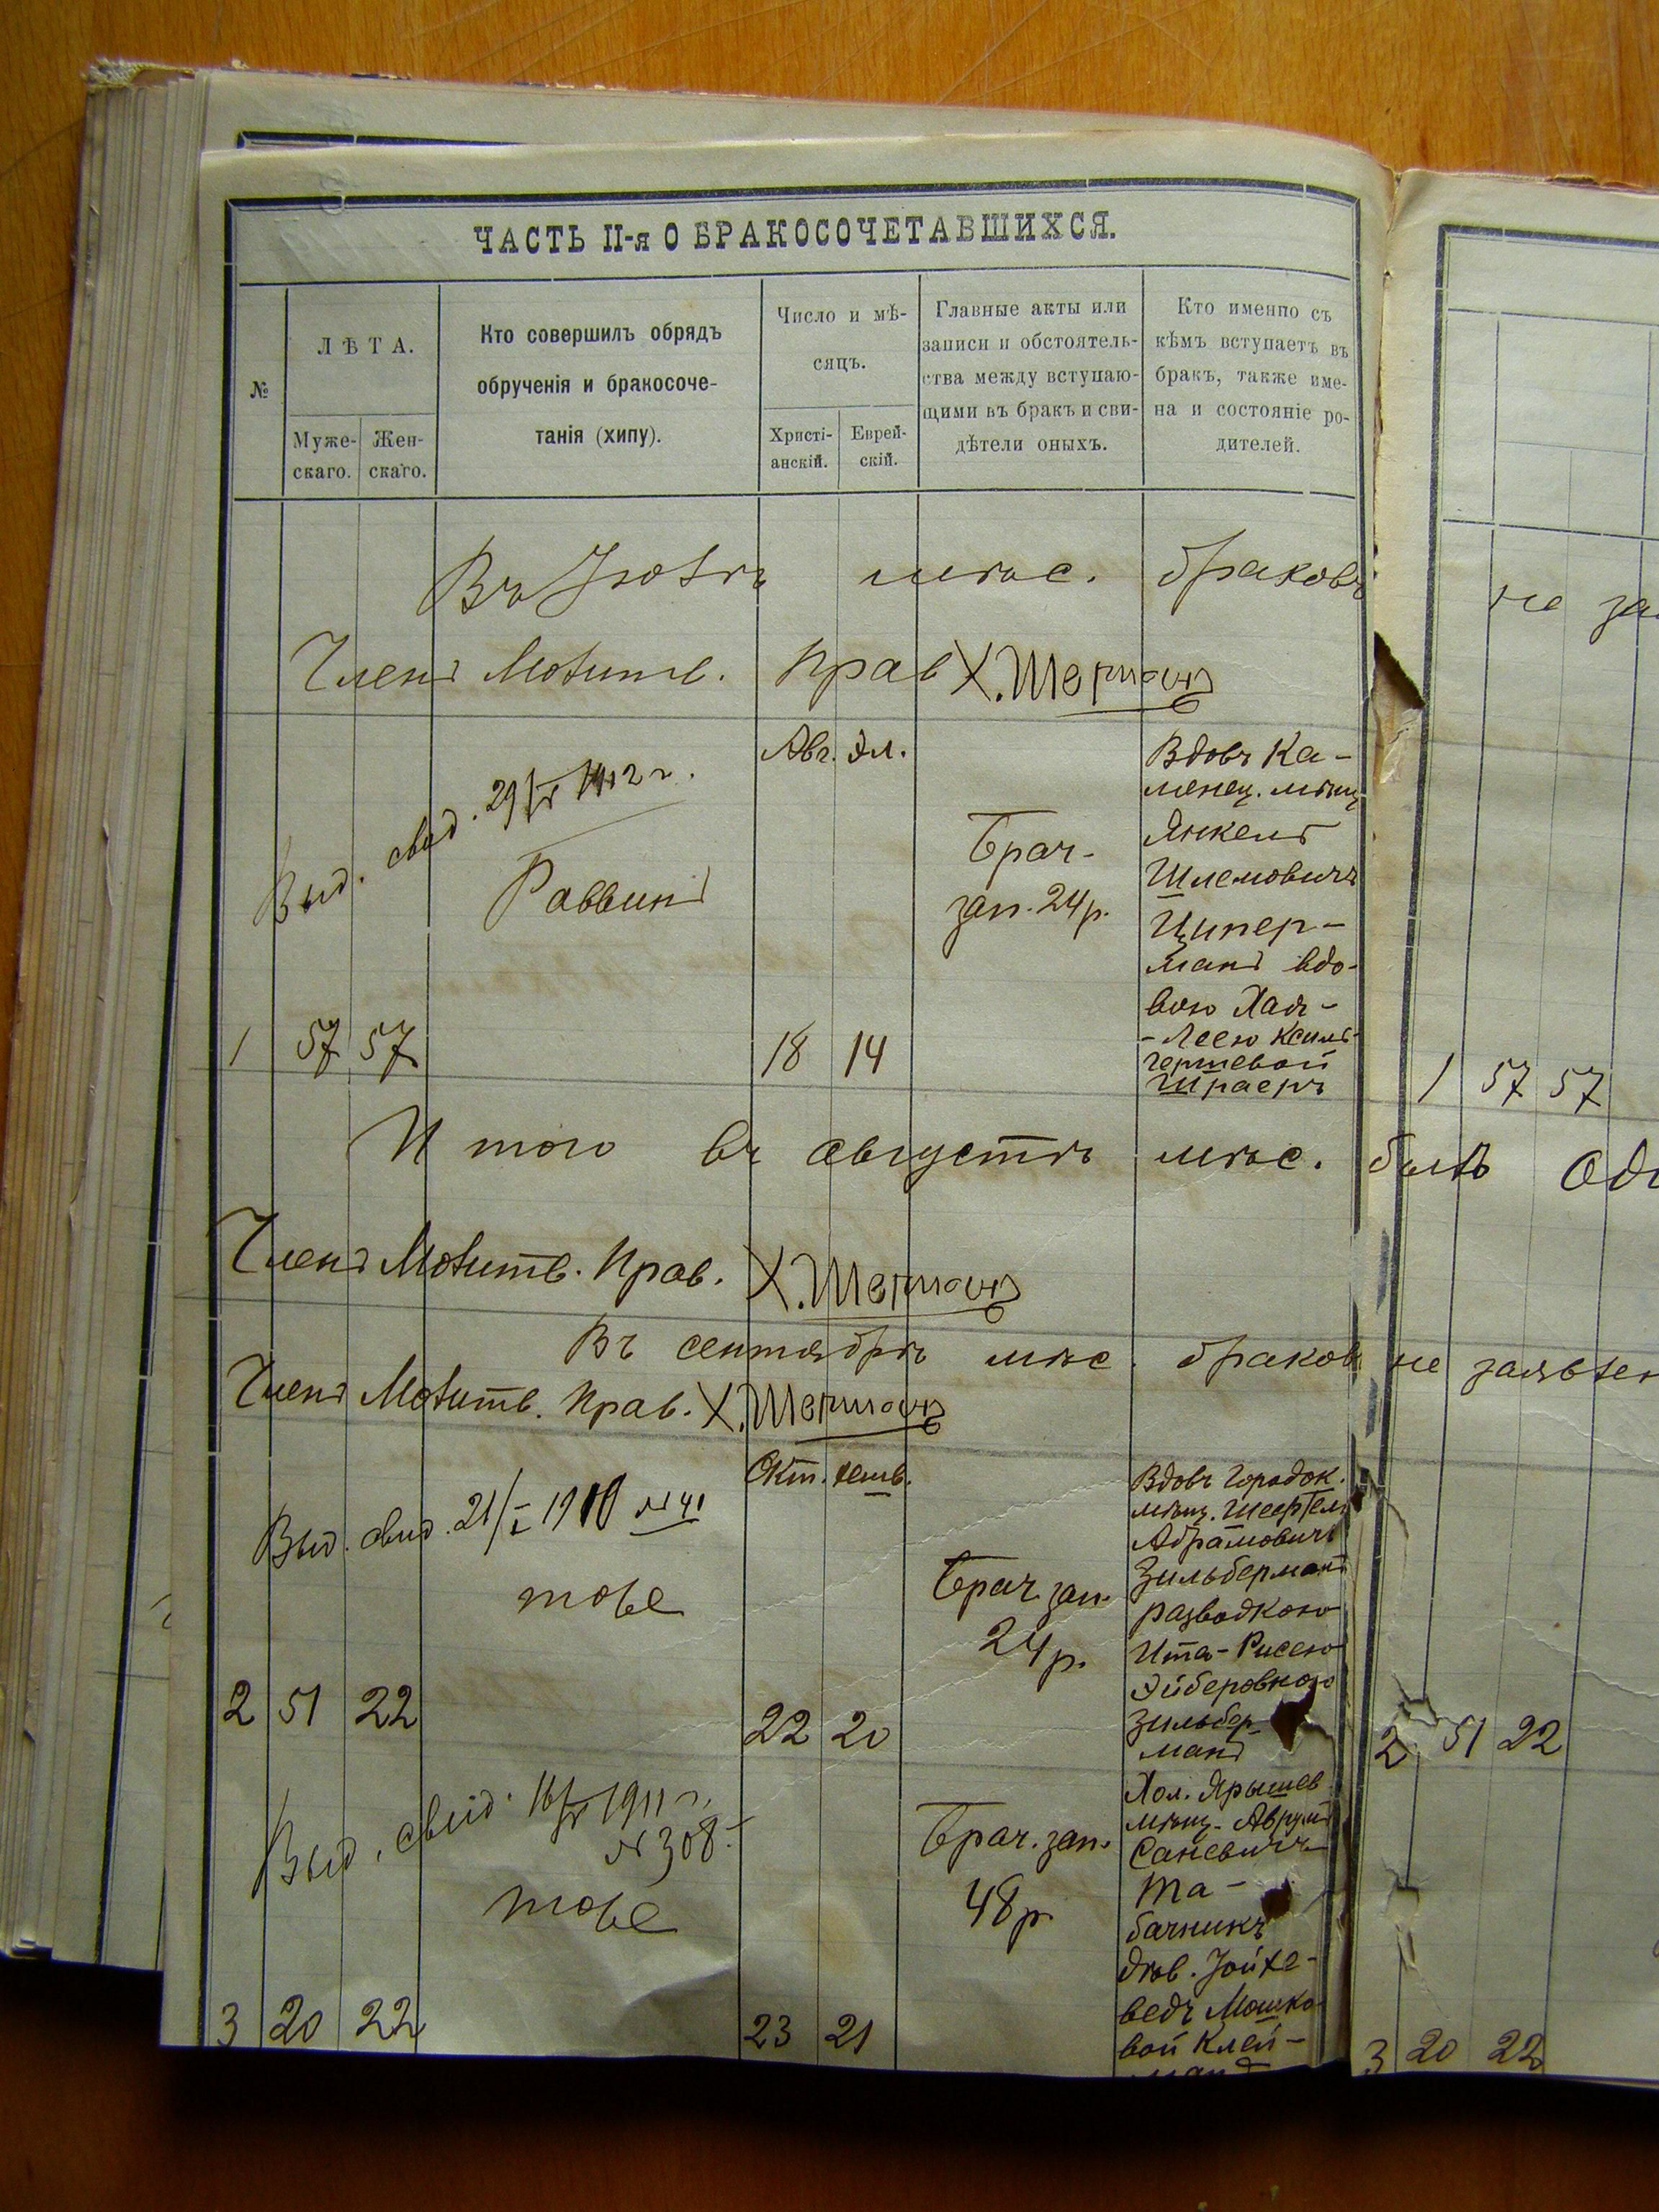 ЧАСТЬ II-я О БРАКОСОЧЕТАВШИХСЯ.
№
ЛѢТА.
Муже-
скаго.
Жен-
скаго.
Кто совершилъ обрядъ
обрученія и бракосоче-
танія (хипу).
Число и мѣ-
сяцъ.
Христі-
анскій.
Еврей-
скій.
Главные акты или
записи и обстоятель-
ства между вступаю-
щими въ бракъ и сви-
дѣтели оныхъ.
Кто именно съ
кѣмъ вступаетъ въ
бракъ, также име-
на и состояніе ро-
дителей.
Въ Іюлѣ мѣс. браковъ не за
Членъ Молитв. Прав Х. Шерманъ
Выд. свид. 29/ 1912 г.
Раввинъ
1 57 57
Авг. Эл.
18 14
Брач-
зап. 24 р.
Вдовъ Ка-
менец. мѣщ
Янкель
Шлемовичъ
Ципер-
манъ вдо-
вою Хая-
-Леею Ксиль-
гершевой
Шраеръ
1 57 57
Итого въ августѣ мѣс. былъ Оди
Членъ Молитв. Прав. Х. Шерманъ
Въ сентябрѣ мѣс. браковъ не заявлен
Членъ Молитв. Прав. Х. Шерманъ
Выд. свид. 21/I 1910 №41
тоже
2 51 22
Окт. хешв.
22 20
Брач зап.
24 р.
Вдовъ Городок.
мѣщ.
Абрамовичъ
Зильберманъ
разводкою
Ита-Рисею
Эйберовною
Зильбер-
манъ
2 51 22
Выд. свид. 16/ 1911 г.
№308-
тоже
3 20 22
23 21
Брач. зап.
48 р
Хол. Ярышев
мѣщ. Аврумъ
Саневичъ
Та-
бачникъ
дѣв. Іойхе-
ведъ Мошко-
вой Клей-
манъ
3 20 22